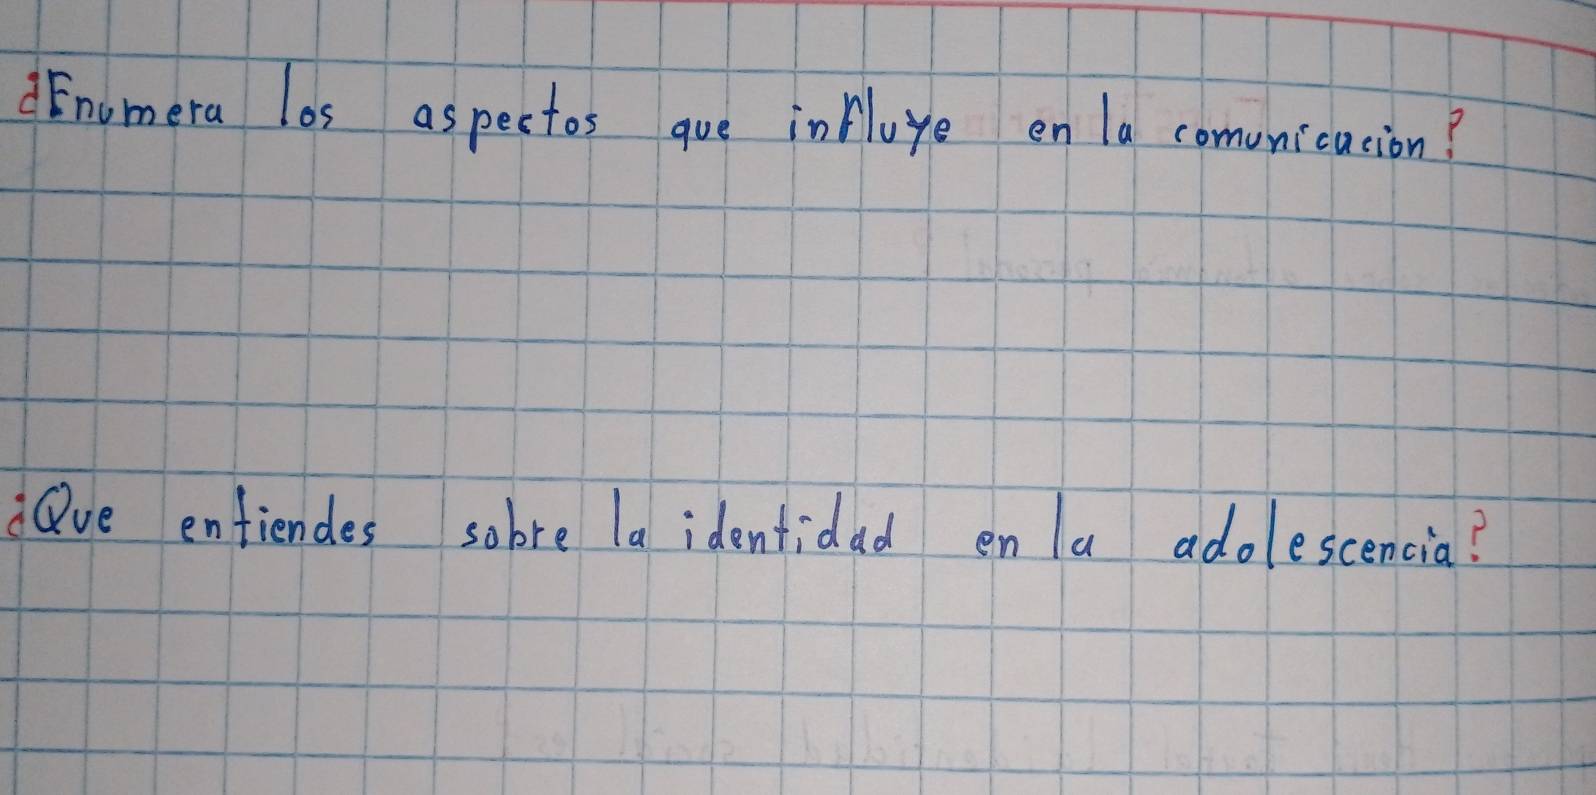 ¿Enumera los aspectos que influye en la comunicacion?
¿Que entiendes sobre la identidad en la adolescencia?